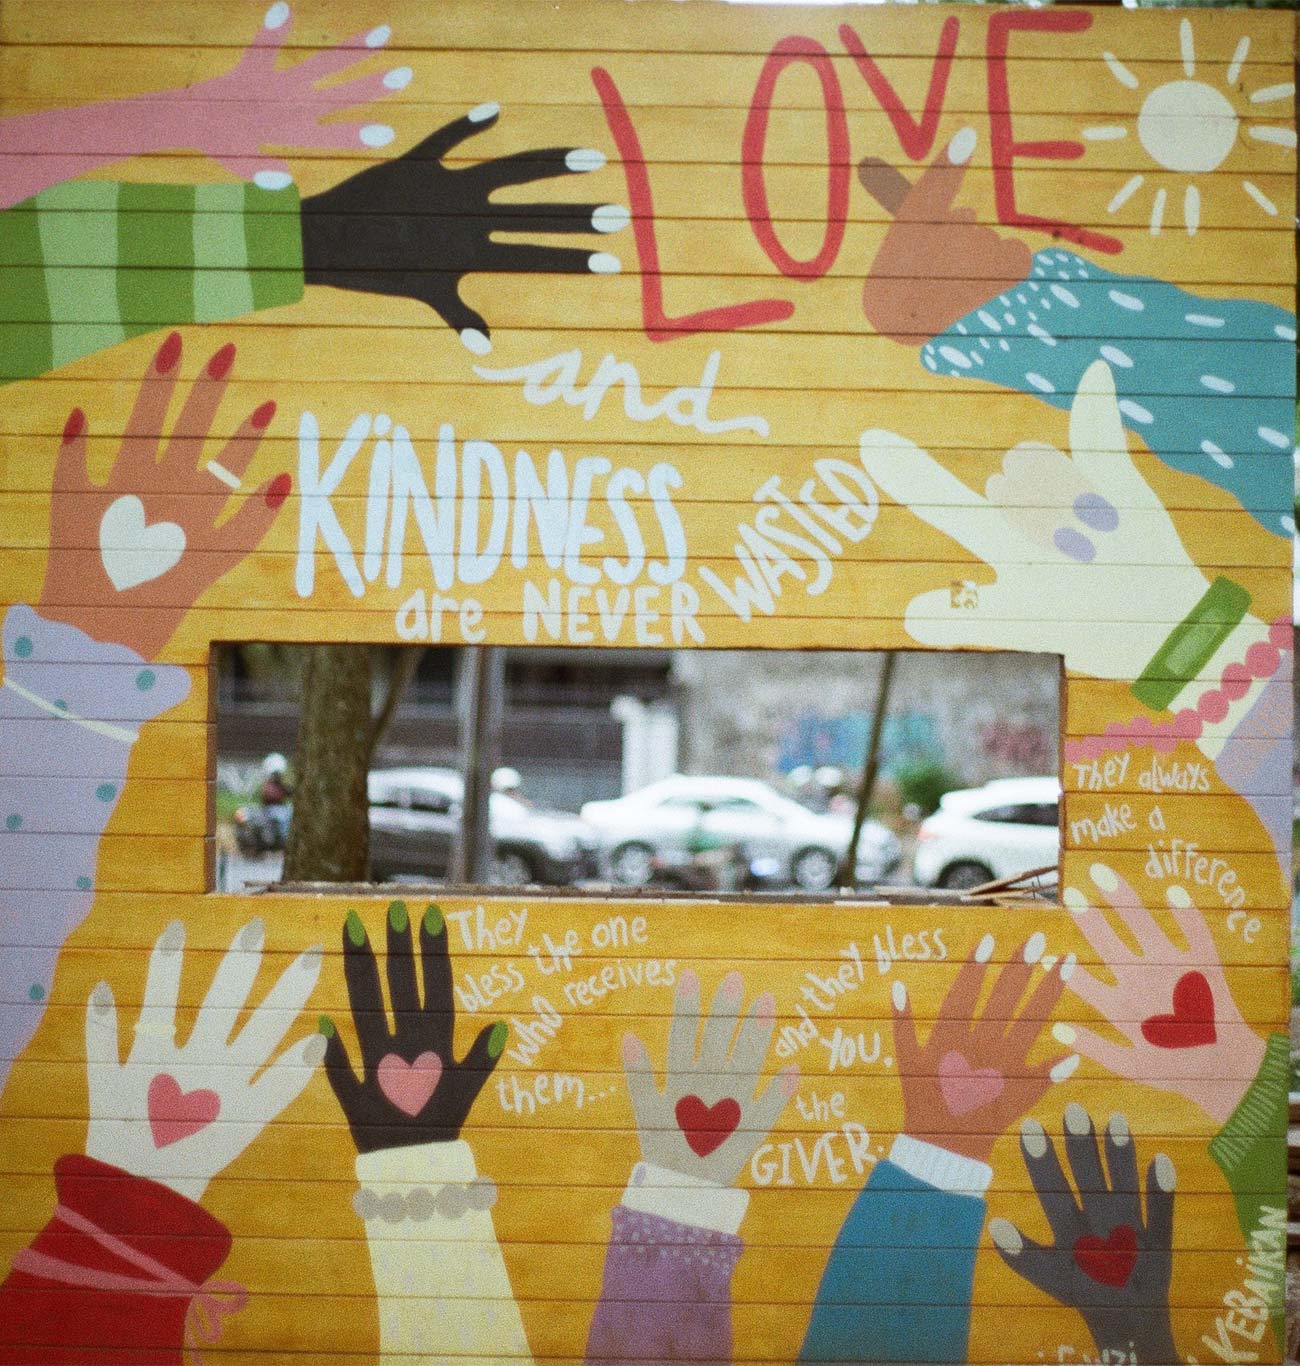 LOVE
and
KiNDNESS
are NEVER WASTED
They always
make a
difference
They
bless the one
who receives
them...
and they bless
YOU.
the
GIVER.
KEBAIKAN